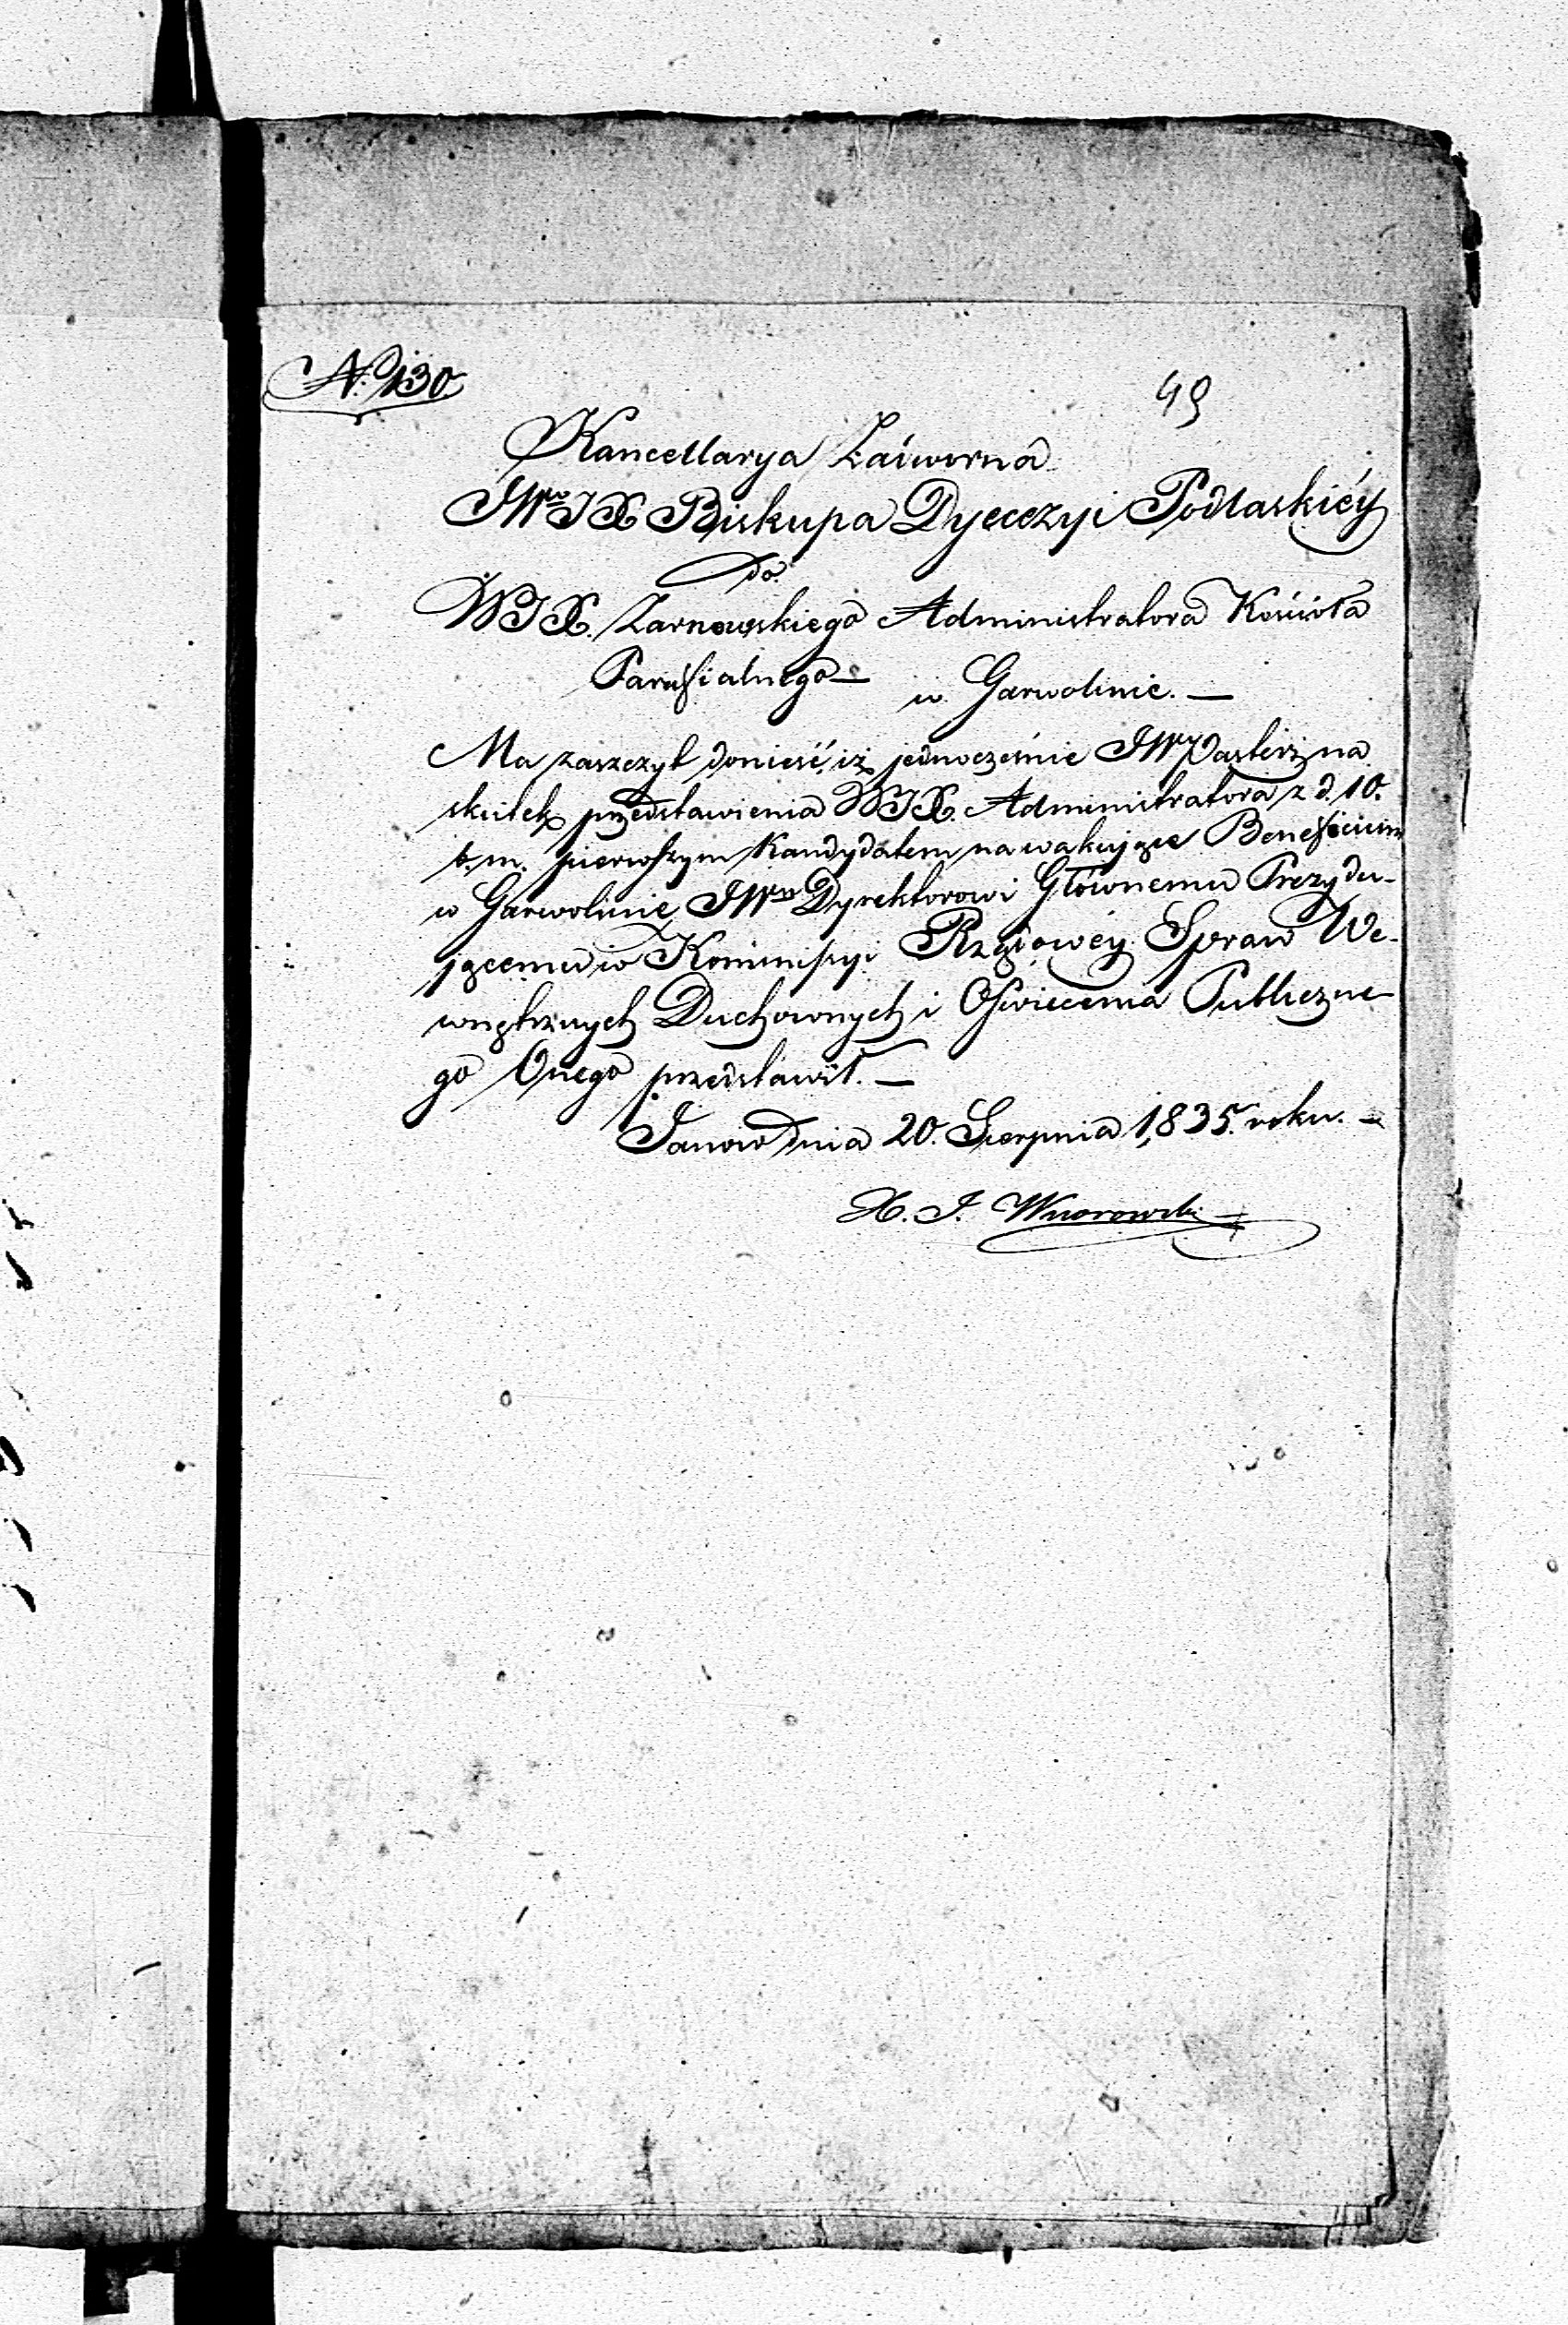 N. 130
49
Kancellarya Zadworna
JWo JX Biskupa Dyecezyi Podlaskiéy
do
WJX. Żarnowskiego Administratora Kościoła
Parafialnego — w Garwolinie. —
Ma zaszczyt donieść, iż jednocześnie JW Pasterz na
skutek przedstawienia WJX. Administratora z d. 10.
t. m. pierwszym Kandydatem na wakujące Beneficium
w Garwolinie JWmu Dyrektorowi Głównemu Prezydu-
jącemu w Kommissyi Rządowéy Spraw We-
wnętrznych Duchownych i Oświecenia Publiczne-
go Onego przedstawił. —
Janow dnia 20. Sierpnia 1835. roku. —
X. J. Wnorowski